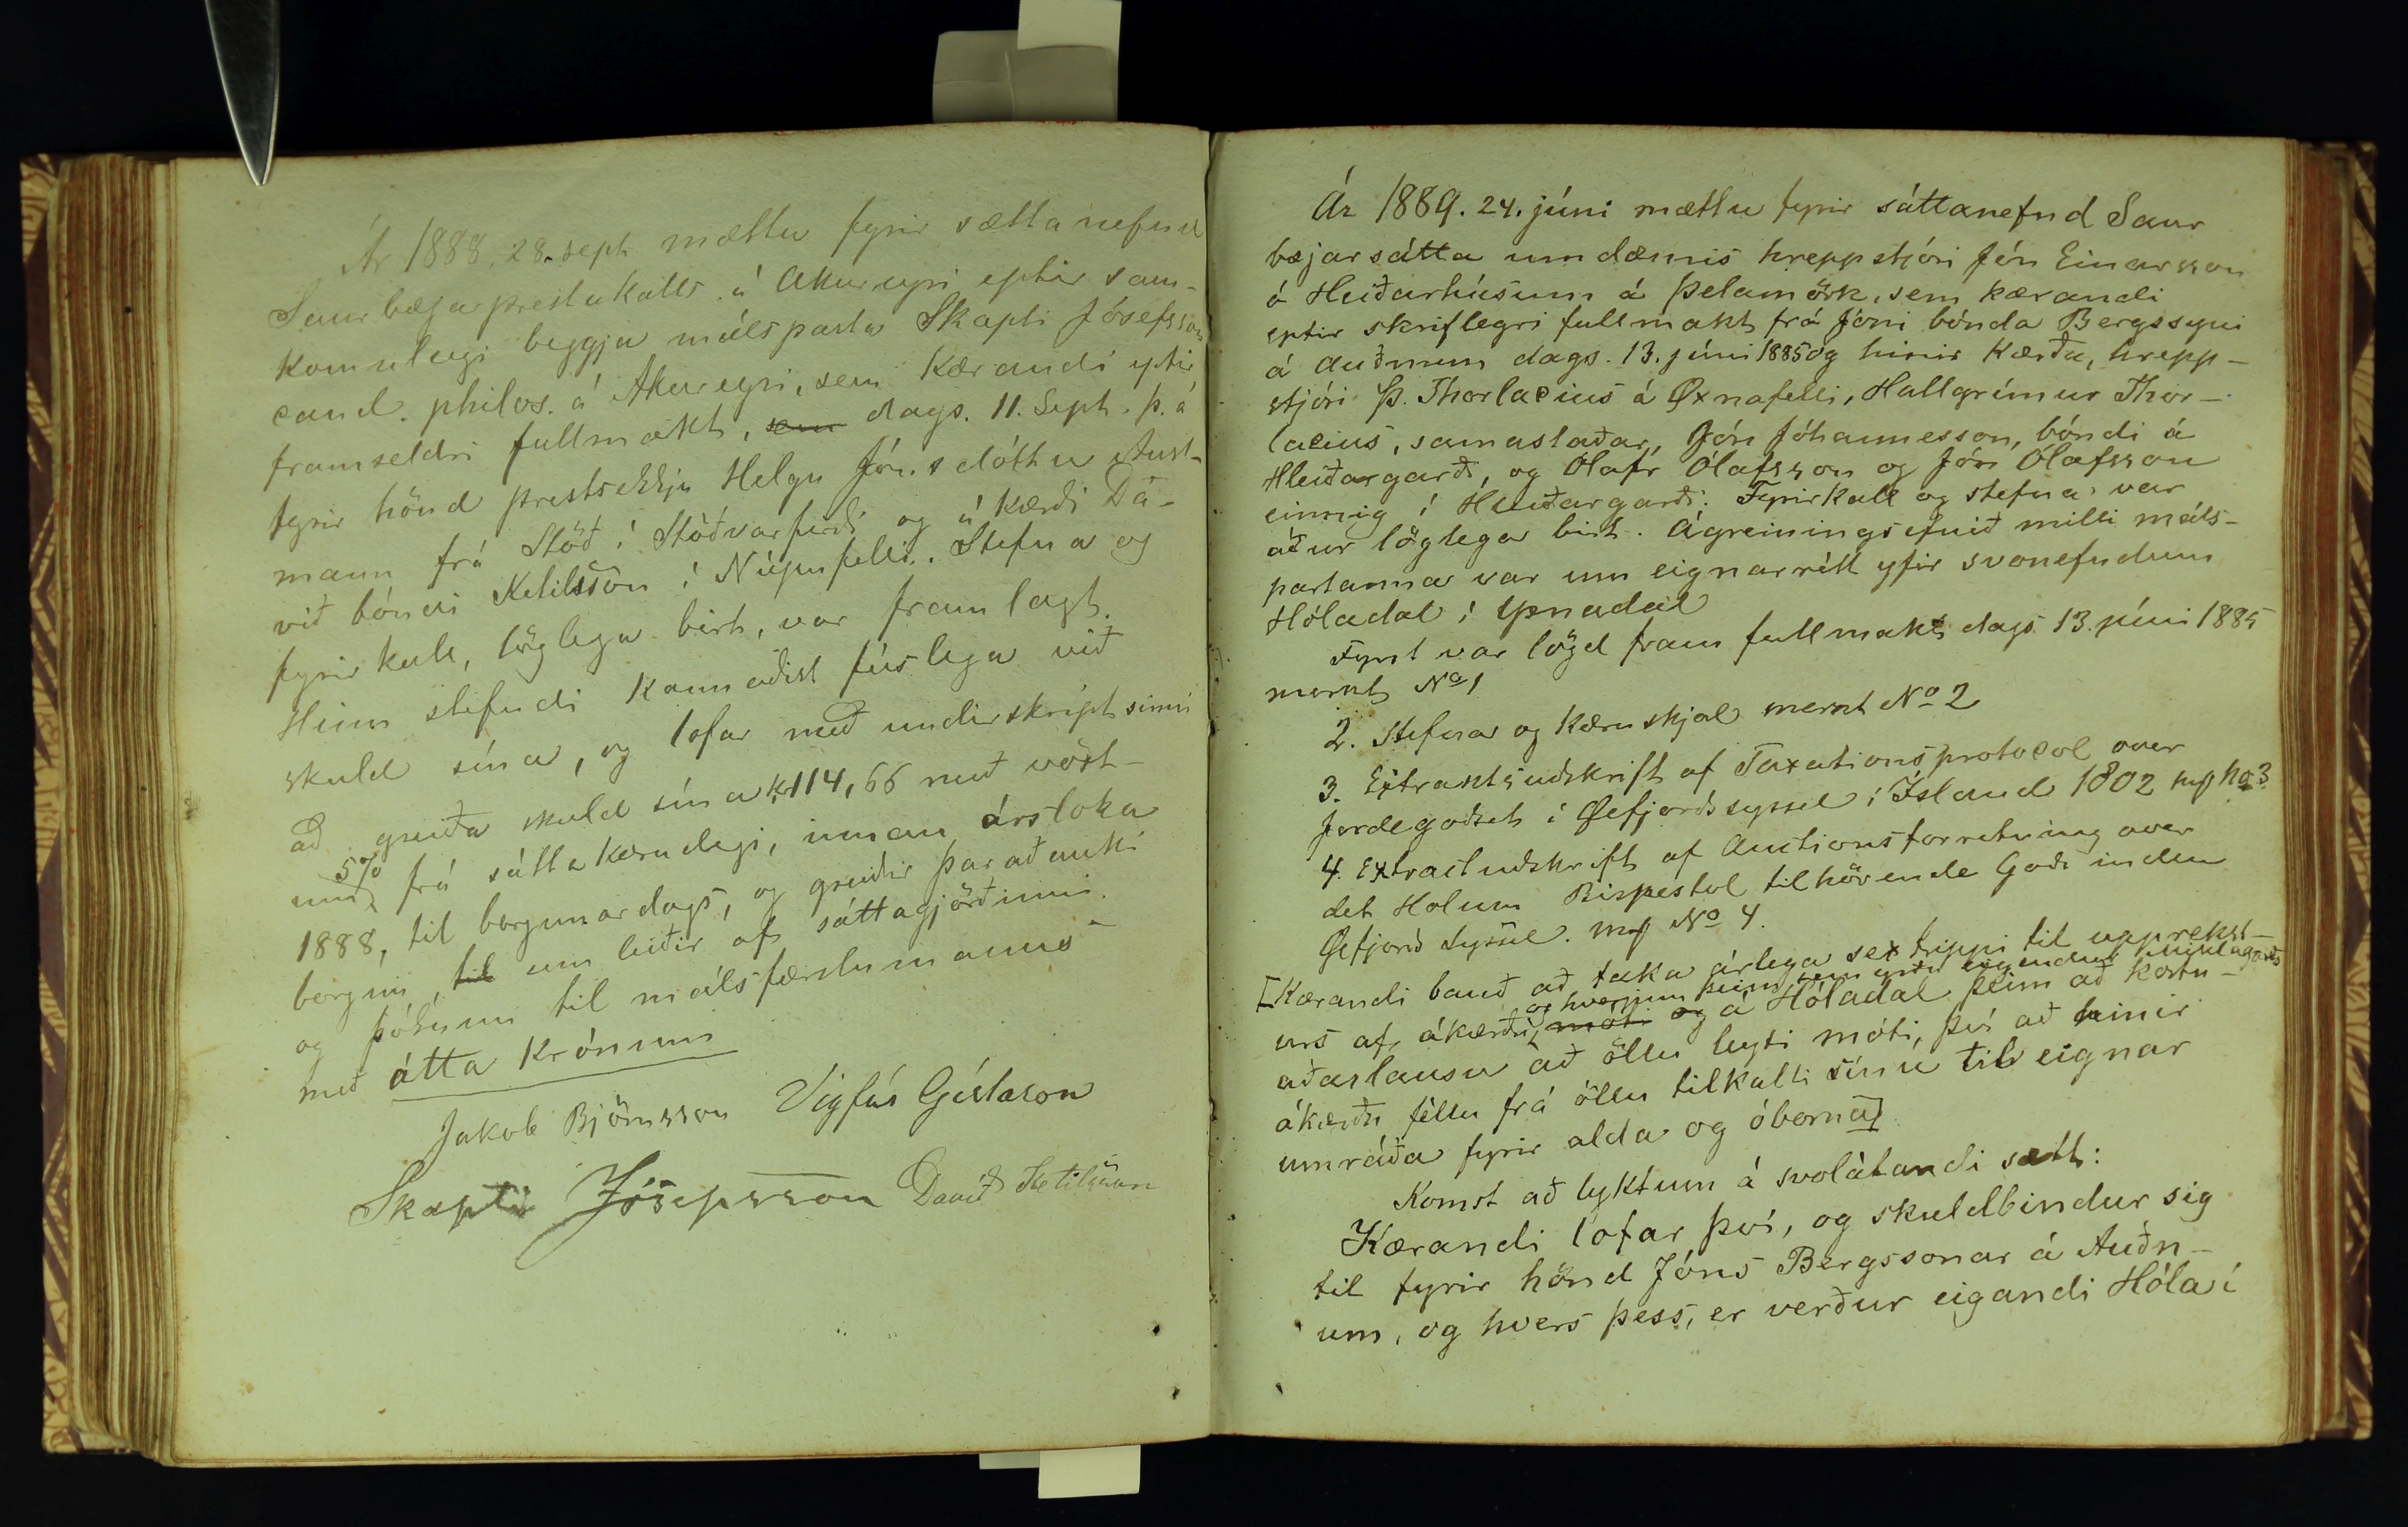 Ár 1888. 28. sept mættu fyrir sættanefnd
Saurbæjarprestakalls á Akureyri eptir sam-
komulegi beggja málsparta Skapti Jósefsson
cand. philos. á Akureyri, sem kærandi eptir
framseldri fullmakt, sem dags. 11. Sept. þ. á
fyrir hönd prestsekkju Helgu Jónsdóttur Aust-
mann frá Stöð í Stöðvarfirði og ákærði Da-
við bóndi Ketilsson í Núpufelli. Stefna og
fyrirkall, löglega birt, var framlagt.
Hinn stefndi kannaðist fúslega við
skuld sína, og lofar með undirskript sinni
að greiða skuld sína kr 114,66 með vöxt-
um 5% frá sáttakærudegi, innan ársloka
1888, til borgunardags, og greiðir þar að auki
borgun, til um leiðir af sáttagjörðinni
og þóknun til málsfærslumanns
með átta krónum
Jakob Björnsson Vigfús Gíslason
Skapti Jósepsson Davíð Ketilsson
Ár 1889. 24. júni mættu fyrir sáttanefnd Saur
bæjarsátta umdæmis hreppstjóri Jón Einarsson
á Heiðarhúsum á Þelamörk, sem kærandi
eptir skriflegri fullmakt frá Jóni bónda Bergssyni
á Auðnum dags. 13. júni 1885 og hinir kærðu, hrepp-
stjóri Þ. Thorlacius á Øxnafelli, Hallgrímur Thor-
lacius, samastaðar, Jón Jóhannesson, bóndi á
Hleiðargarði, og Ólafr Ólafsson og Jón Ólafsson
einnig í Hleiðargarði. Fyrirkall og stefna var
áður löglega birt. Ágreiningsefnið milli máls-
partanna var um eignarrétt yfir svonefndum
Hóladal í Yxnadal
Fyrst var lögð fram fullmakt dags 13. júni 1885
merkt No 1
2. Stefna og kæruskjal merkt No 2
3. Extraktsudskrift af Taxationsprotocol over
Jordegodset i Øefjordssyssel i Island 1802 No 3
4. Extractudskrift af Auctionsforretning over
det Holum Bispestol tilhörende Gods inden
Øefjord Syssel. No 4.
[Kærandi bauð að taka árlega sex trippi til upprekst-
og hverjum þeim sem yrðu eigendur Miklagarðs
urs af ákærðu, móti og á Hóladal þeim að kostn-
aðarlausu að öllu leyti móti, því að hinir
ákærðu féllu frá öllu tilkalli sínu til eignar
umráða fyrir alda og óborna]
Komst að lyktum á svolátandi sætt:
Kærandi lofar því, og skuldbindur sig
til fyrir hönd Jóns Bergssonar á Auðn-
um, og hvers þess, er verður eigandi Hóla í